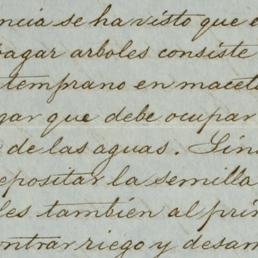 ncia se ha visto que e
pagar arboles consiste
temprano en maceta
gar que debe ocupar
de las aguas. Sin
epositar la semilla
les también al prin
ontrar riego y desam